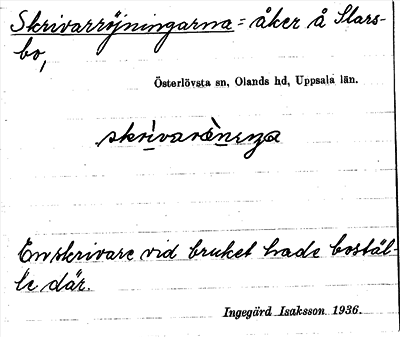 Skrivarröjningarna = åker å Slars-
bo,
Österlövsta sn, Olands hd, Uppsala län.
En skrivare vid bruket hade bostäl-
le där.
Ingegärd Isaksson 1936.